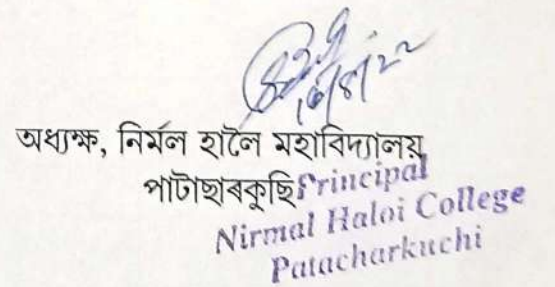 16/8/22
অধ্যক্ষ, নিৰ্মল হালৈ মহাবিদ্যালয়
পাটাছাৰকুছি
Principal
Nirmal Haloi College
Patacharkuchi